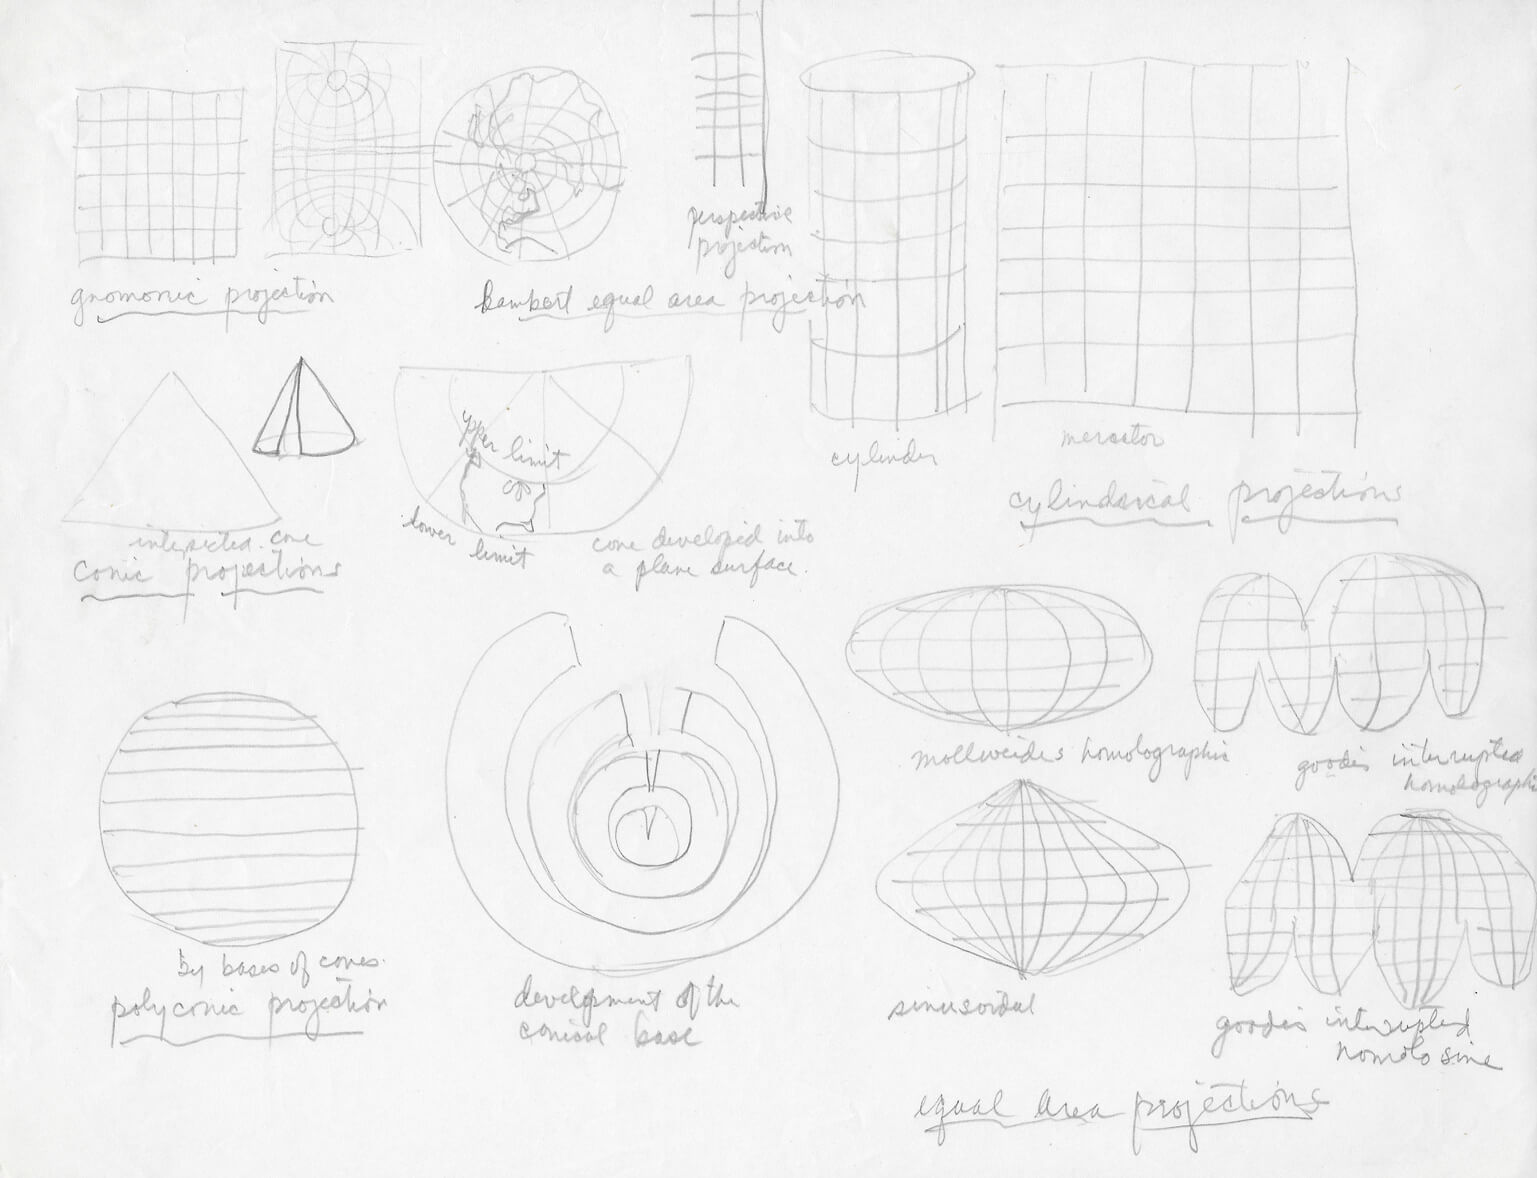 perspective
projection
gnomonic projection
Lambert equal area projection
cylinder
mercator
cylindarical projections
upper limit
lower limit
cone developed into
a plane surface.
intersected cone
conic projections
mollweides homolographic
goodes interrupted
homolographic
by bases of cones.
polyconic projection
development of the
conical base
sinusoidal
goodes interrupted
homolo sine
equal area projections